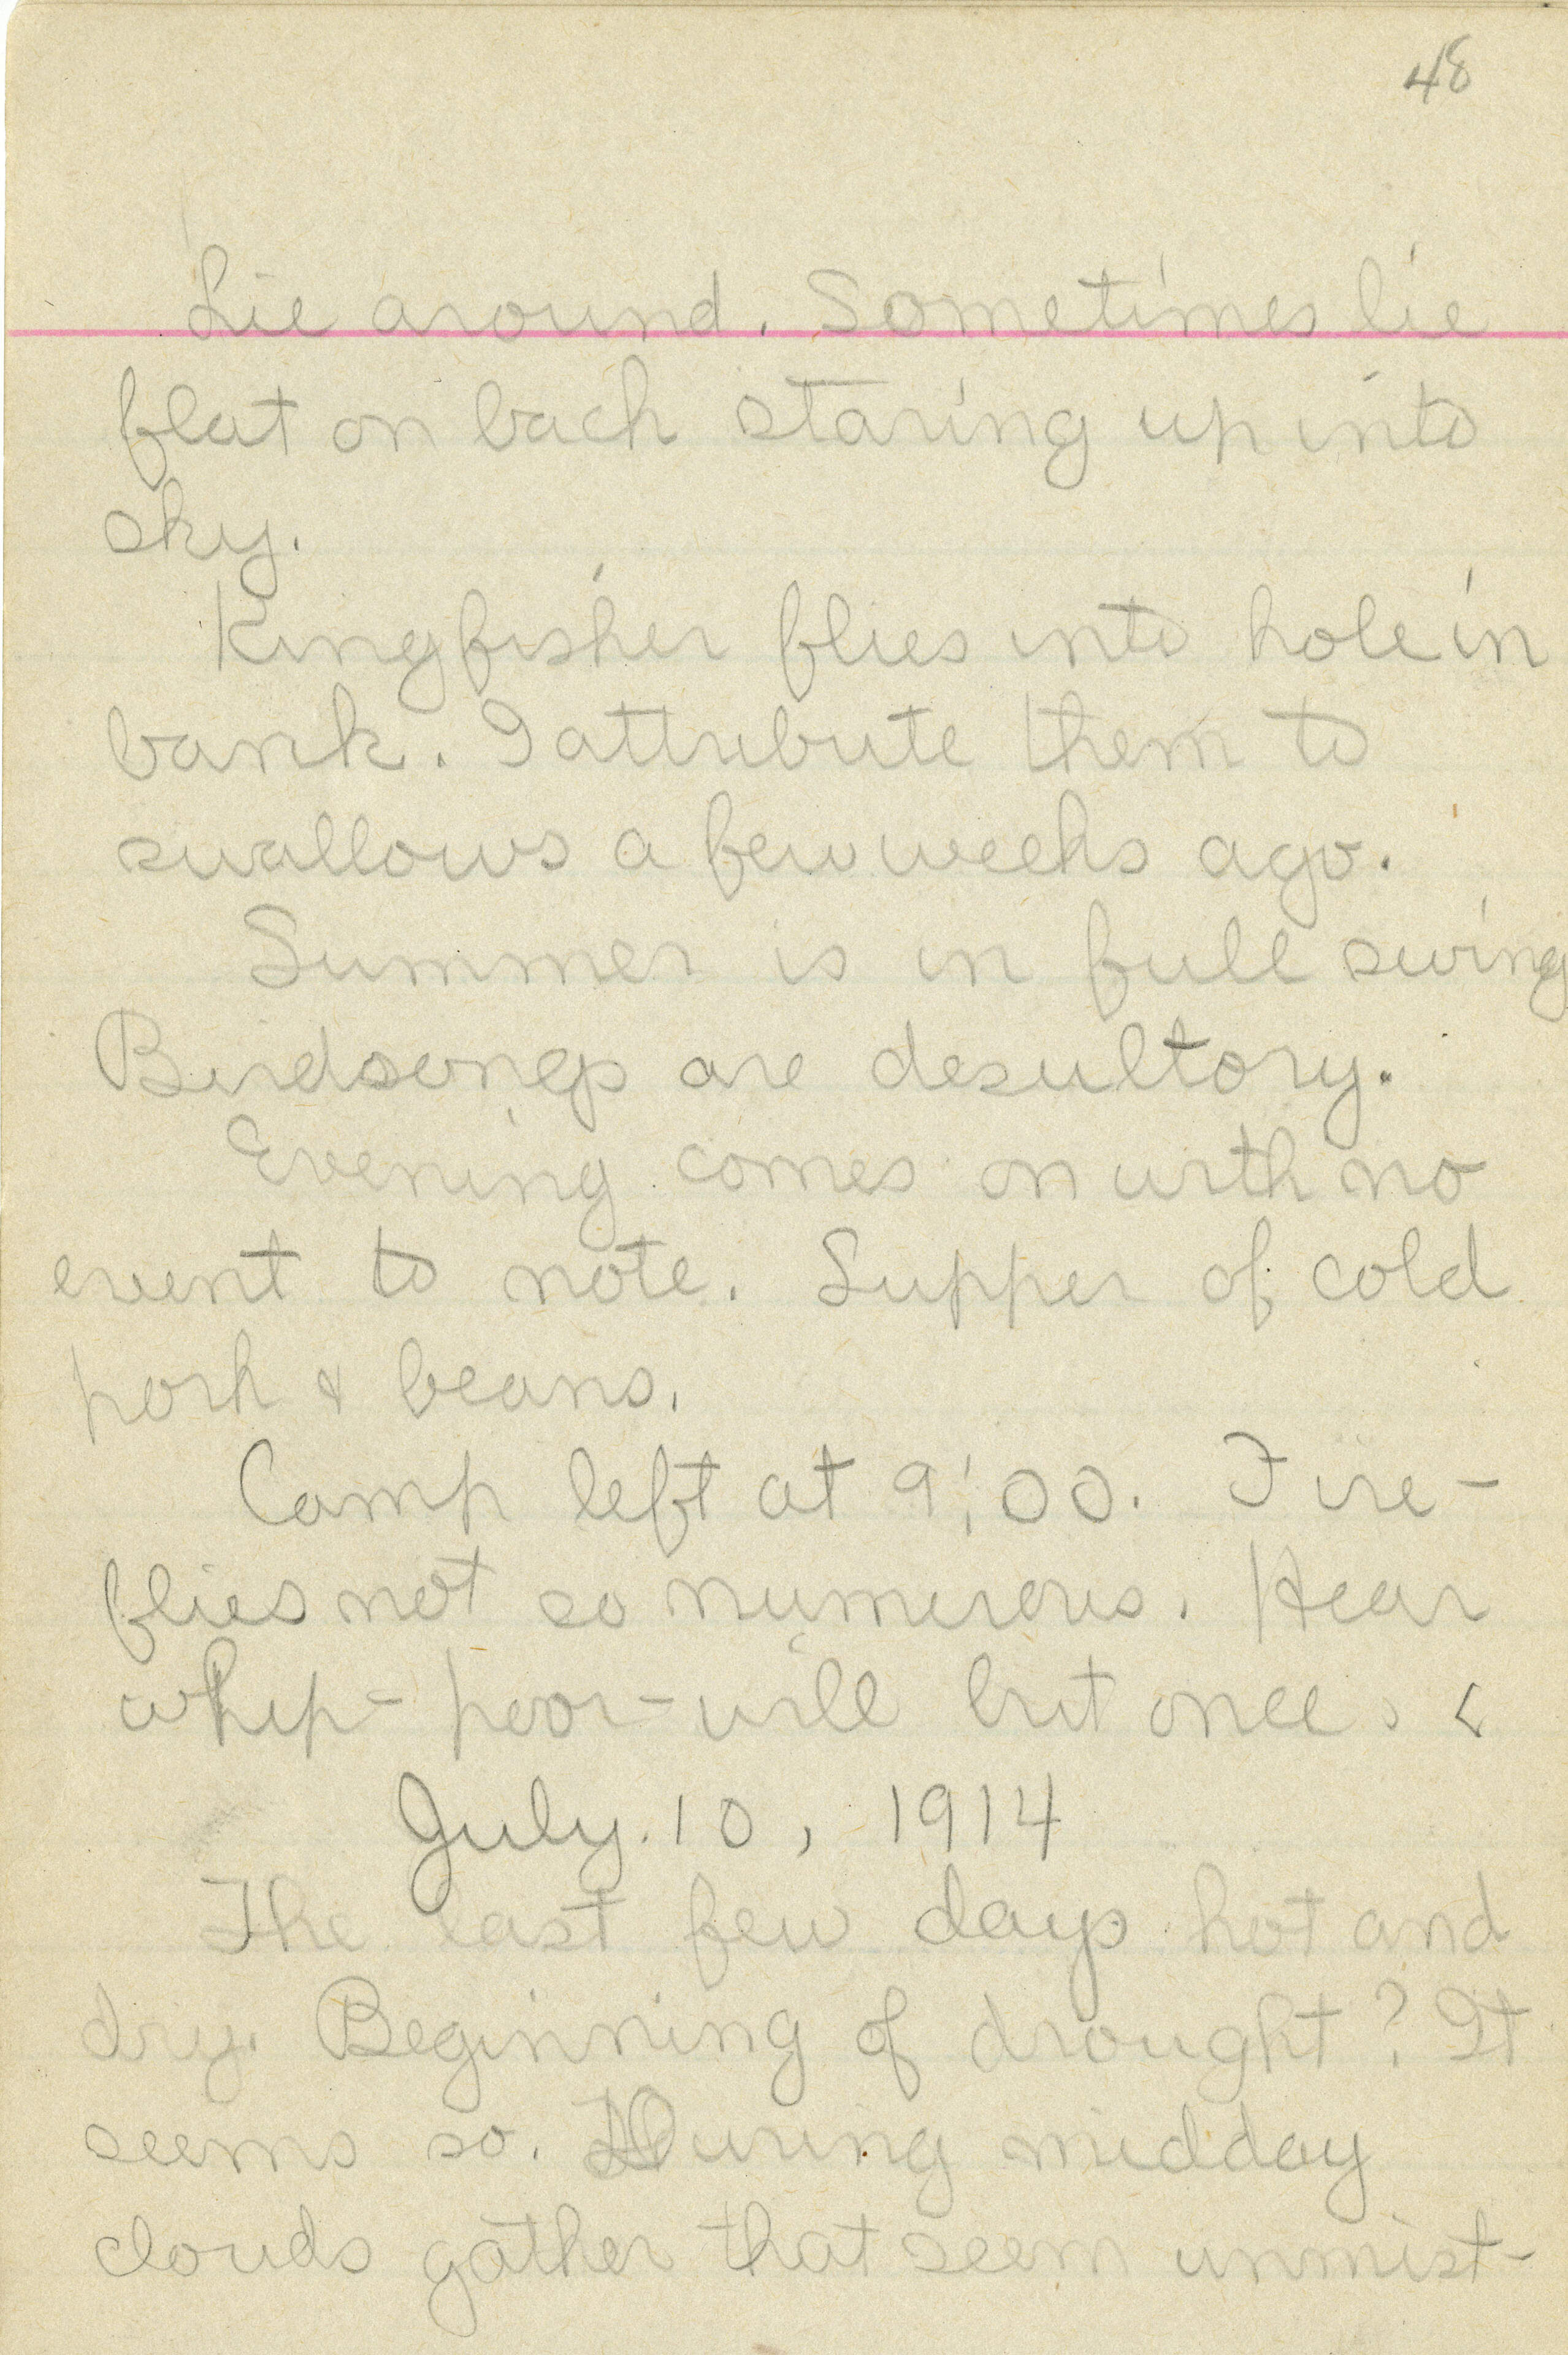 48
Lie around. Sometimes lie
flat on back staring up into
sky.
Kingfisher flies into hole in
bank. I attribute them to
swallows a few weeks ago.
Summer is in full swing
Birdsongs are desultory.
Evening comes on with no
event to note. Supper of cold
pork & beans.
Camp left at 9:00. Fire-
flies not so numerous. Hear
whip-poor-will but once.
July 10, 1914
The last few days hot and
dry. Beginning of drought? It
seems so. During midday
clouds gather that seem unmist-